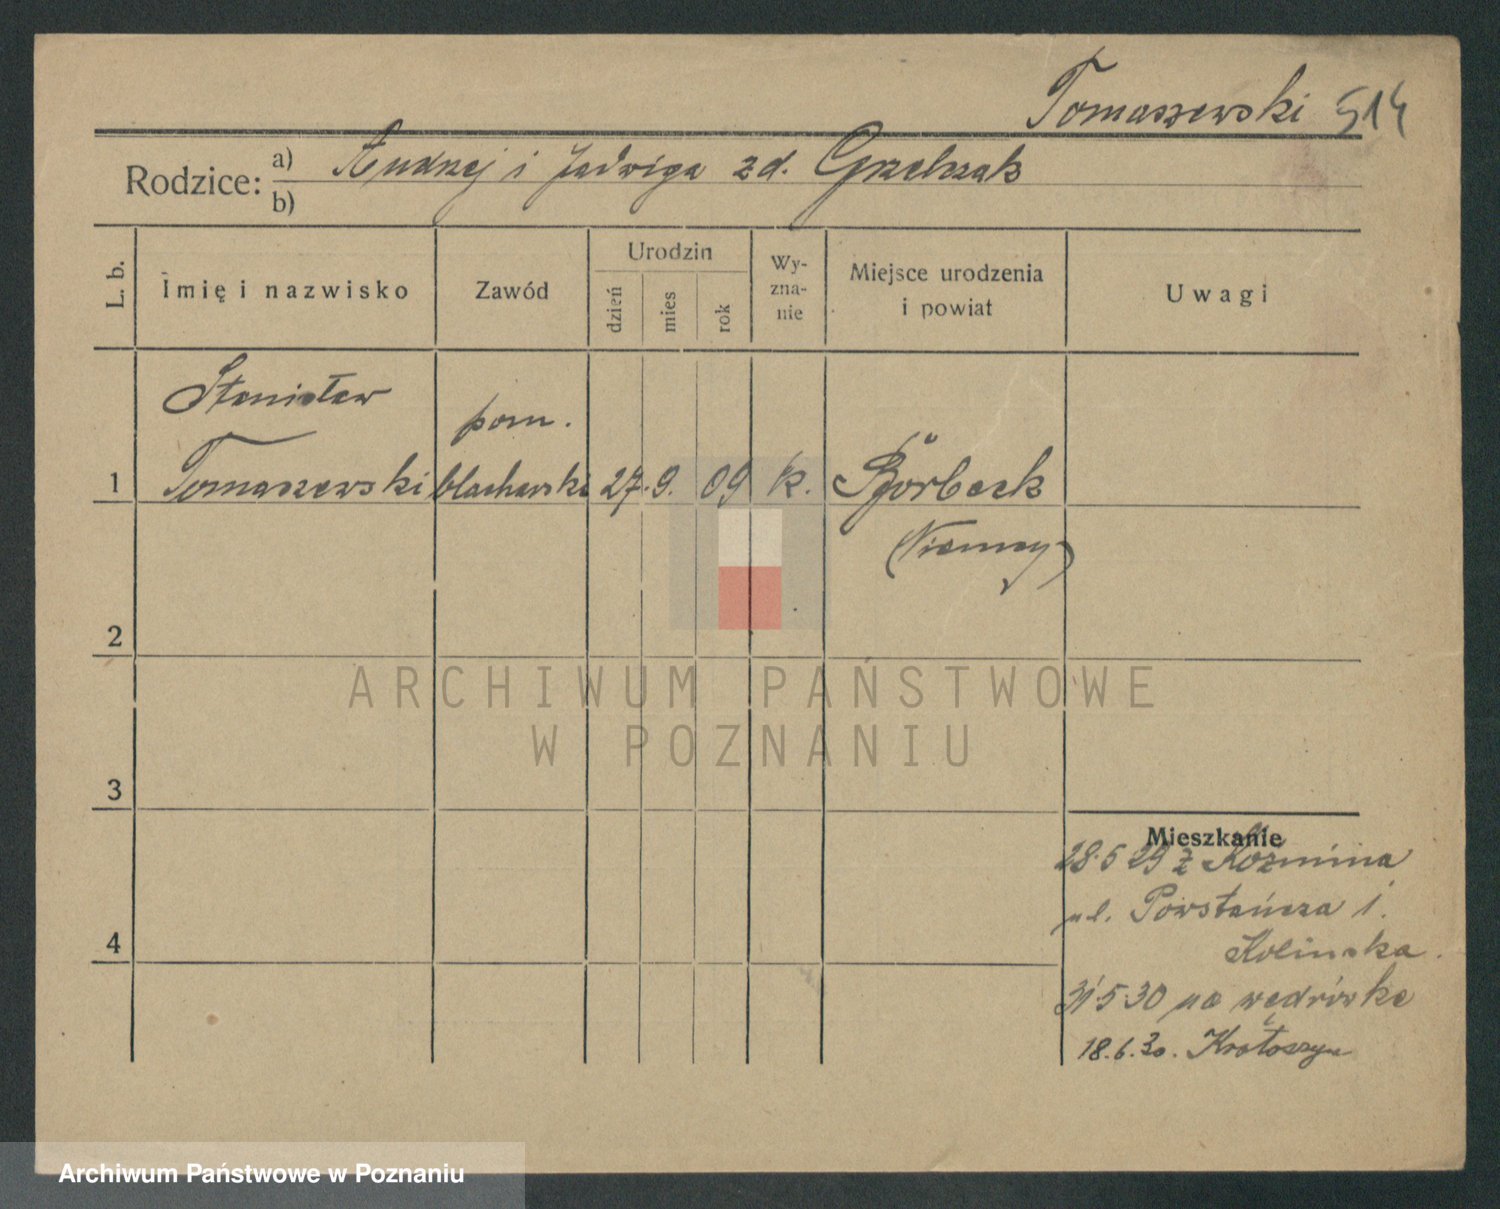 Tomaszewski 514
Rodzice: a) Andrzej i Jadwiga zd. Grzelczak
b)
L. b. Imię i nazwisko Zawód Urodzin dzień mies rok Wyznanie Miejsce urodzenia i powiat Uwagi
Stanisław
pom.
1 Tomaszewski blacharski 27. 9. 09 k. Börbeck
(Niemcy)
2
ARCHIWUM PAŃSTWOWE
W POZNANIU
3
Mieszkanie
28.5 29 z Koźmina
4 ul. Powstańcza 1.
31.5.30 na wędrówkę
18.6.30. Krotoszyn
Archiwum Państwowe w Poznaniu